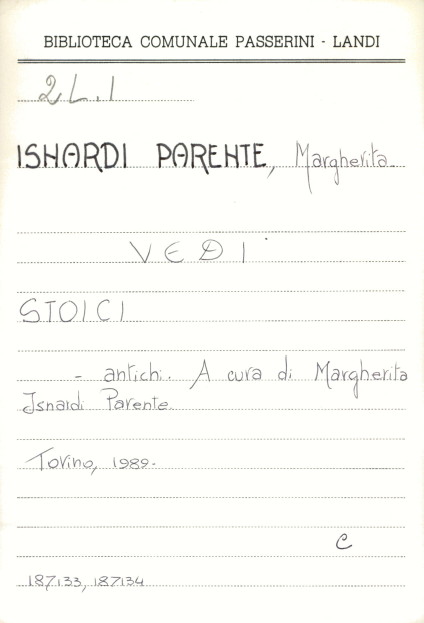 BIBLIOTECA COMUNALE PASSERINI - LANDI
2L.1
ISNARDI PARENTE, Margherita.
VEDI
STOICI
- antichi. A cura di Margherita
Isnardi Parente.
Torino, 1989.
C
187133, 187134